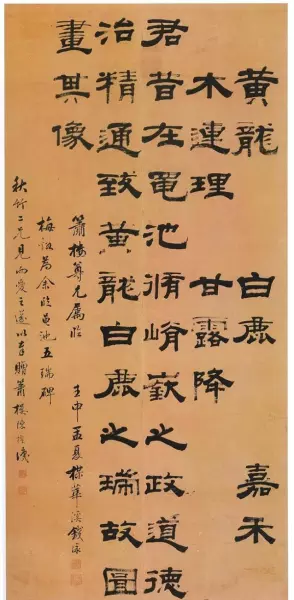 黄龍 白鹿 嘉禾
木連理 甘露降
君昔在黽池脩崤嶔之政道德
治精通致黄龍白鹿之瑞故圖
畫其像
簫樓尊兄屬臨 壬申孟夏梅華溪錢泳
梅谿為余臨黽池五瑞碑
秋竹二兄見而愛之遂以奉贈簫樓陳識